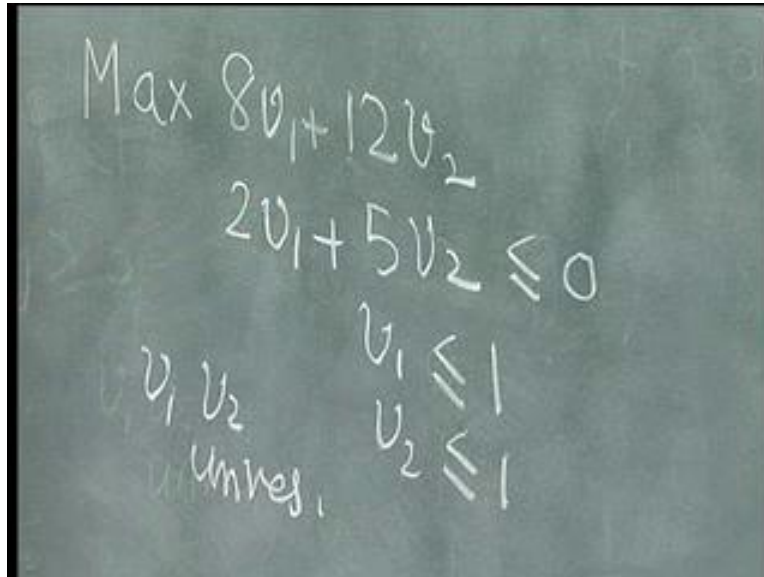 Max 8v₁+12v₂
2v₁+5v₂ ≤ 0
v₁ ≤ 1
v₁ v₂
v₂ ≤ 1
unres.